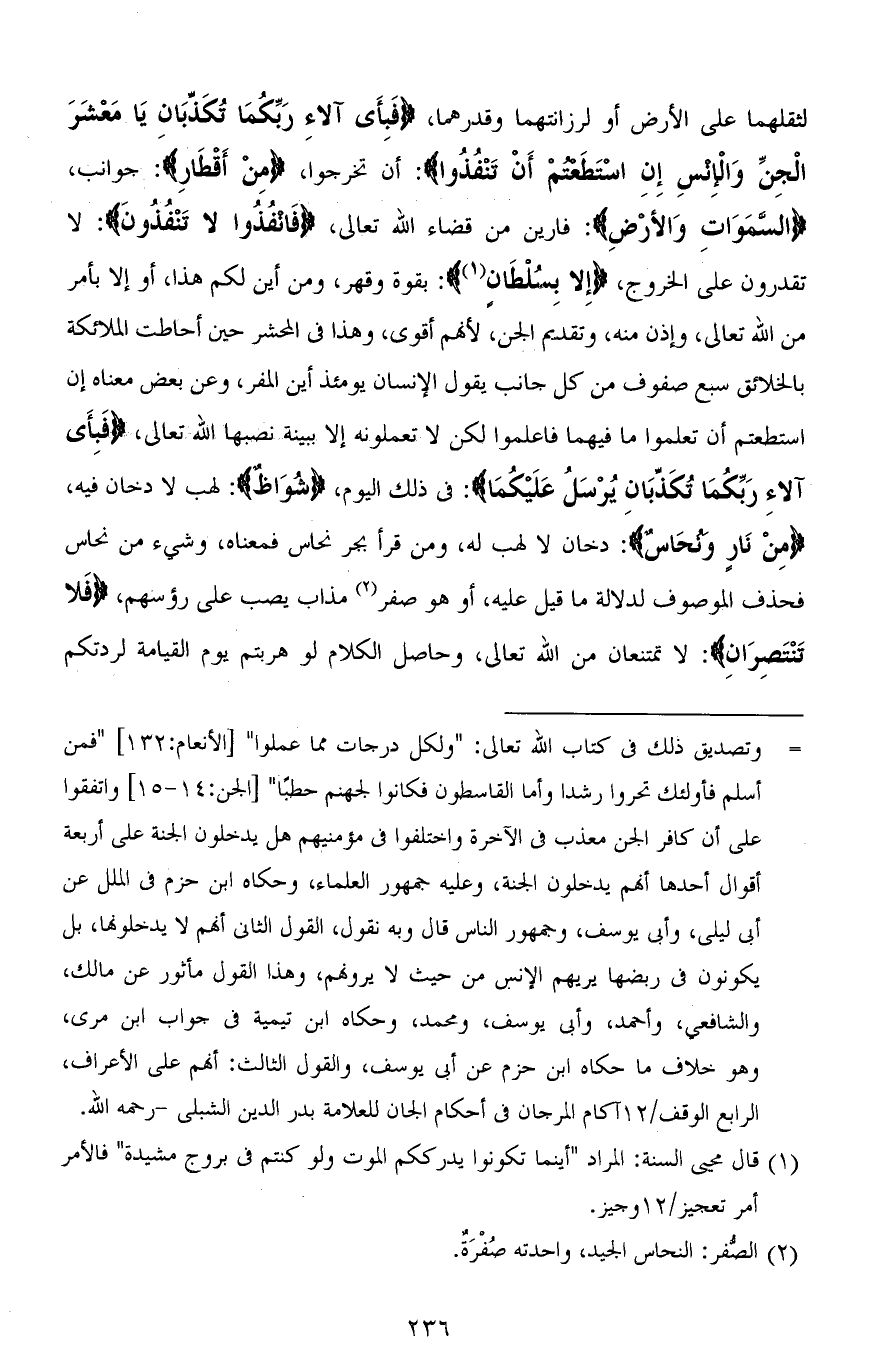 لثقلهما على الأرض أو لرزانتهما وقدرهما، ﴿فَبِأَى آلاءِ رَبِّكُمَا تُكَذِّبَانِ يَا مَعْشَرَ
الْجِنِّ وَالْإِنْسِ إِنِ اسْتَطَعْتُمْ أَنْ تَنْفُذُوا﴾: أن تخرجوا، ﴿مِنْ أَقْطَارِ﴾: جوانب،
﴿السَّمَوَاتِ وَالأَرْضِ﴾: فارين من قضاء الله تعالى، ﴿فَانْفُذُوا لا تَنْفُذُونَ﴾: لا
تقدرون على الخروج، ﴿إِلا بِسُلْطَانٍ(١)﴾: بقوة وقهر، ومن أين لكم هذا، أو إلا بأمر
من الله تعالى، وإذن منه، وتقديم الجن، لأنهم أقوى، وهذا فى المحشر حين أحاطت الملائكة
بالخلائق سبع صفوف من كل جانب يقول الإنسان يومئذ أين المفر، وعن بعض معناه إن
استطعتم أن تعلموا ما فيهما فاعلموا لكن لا تعملونه إلا ببينة نصبها الله تعالى، ﴿فَبِأَى
آلاءِ رَبِّكُمَا تُكَذِّبَانِ يُرْسَلُ عَلَيْكُمَا﴾: فى ذلك اليوم، ﴿شُوَاظٌ﴾: لهب لا دخان فيه،
﴿مِنْ نَارٍ وَنُحَاسٌ﴾: دخان لا لهب له، ومن قرأ بجر نحاس فمعناه، وشيء من نحاس
فحذف الموصوف لدلالة ما قبل عليه، أو هو صفر(٢) مذاب يصب على رؤسهم، ﴿فَلا
تَنْتَصِرَانِ﴾: لا تمتنعان من الله تعالى، وحاصل الكلام لو هربتم يوم القيامة لردتكم
= وتصديق ذلك فى كتاب الله تعالى: "ولكل درجات مما عملوا" [الأنعام:١٣٢] "فمن
أسلم فأولئك تحروا رشدا وأما القاسطون فكانوا لجهنم حطبًا" [الجن:١٤-١٥] واتفقوا
على أن كافر الجن معذب فى الآخرة واختلفوا فى مؤمنيهم هل يدخلون الجنة على أربعة
أقوال أحدها أنهم يدخلون الجنة، وعليه جمهور العلماء، وحكاه ابن حزم فى الملل عن
أبى ليلى، وأبى يوسف، وجمهور الناس قال وبه نقول، القول الثانى أنهم لا يدخلونها، بل
يكونون فى ربضها يريهم الإنس من حيث لا يرونهم، وهذا القول مأثور عن مالك،
والشافعي، وأحمد، وأبى يوسف، ومحمد، وحكاه ابن تيمية فى جواب ابن مرى،
وهو خلاف ما حكاه ابن حزم عن أبى يوسف، والقول الثالث: أنهم على الأعراف،
الرابع الوقف/١٢آكام المرجان فى أحكام الجان للعلامة بدر الدين الشبلى -رحمه الله.
(١) قال محيى السنة: المراد "أينما تكونوا يدرككم الموت ولو كنتم فى بروج مشيدة" فالأمر
أمر تعجيز/١٢وجيز.
(٢) الصُّفر: النحاس الجيد، واحدته صُفْرَةٌ.
٢٣٦